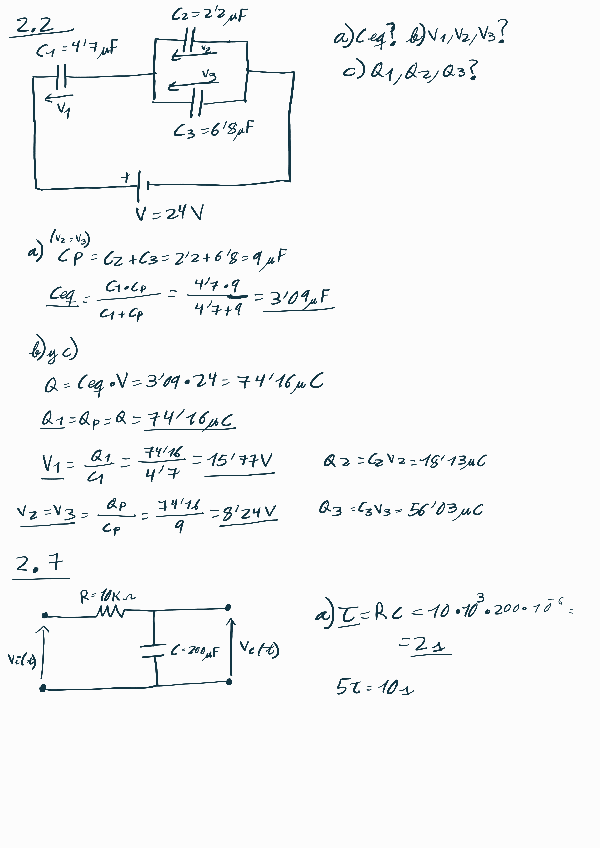 2.2
C2=2'2μF
C1=4'7μF
V2
V3
V1
C3=6'8μF
+
V=24V
a) Ceq? b) V1, V2, V3?
c) Q1, Q2, Q3?
(V2=V3)
a) Cp = C2+C3 = 2'2+6'8 = 9μF
Ceq = C1·Cp / C1+Cp = 4'7·9 / 4'7+9 = 3'09μF
b) y c)
Q = Ceq·V = 3'09·24 = 74'16μC
Q1=Qp=Q = 74'16μC
V1 = Q1/C1 = 74'16/4'7 = 15'77V
Q2=C2V2=18'13μC
V2=V3 = Qp/Cp = 74'16/9 = 8'24V
Q3=C3V3=56'03μC
2.7
R=10KΩ
Vi(t)
C=200μF
Vc(t)
a) τ=RC = 10·10³·200·10⁻⁶ =
= 2s
5τ=10s